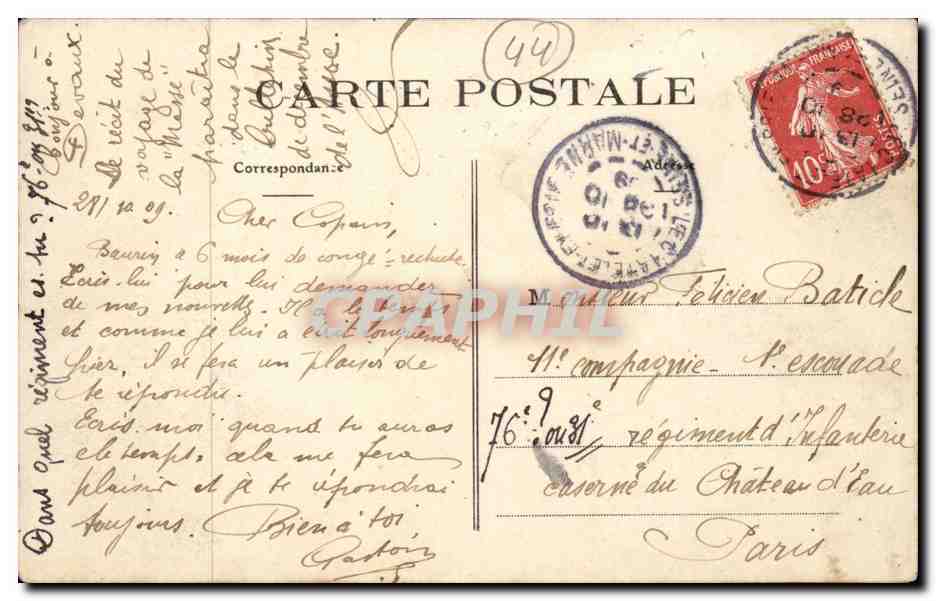 44
CARTE POSTALE
Correspondance
Adresse
REPUBLIQUE FRANÇAISE
10
SEINE-ET-MARNE
28
28/10 09.
Cher Copain,
Baurin a 6 mois de congé = rechute
Ecris-lui pour lui demander
de mes nouvelles. Il a le temps
et comme je lui a écrit longuement
hier, il se fera un plaisir de
te répondre.
Ecris-moi quand tu auras
le temps. cela me fera
plaisir et je te répondrai
toujours. Bien à toi
Gaston
Monsieur Felicien Baticle
11e compagnie - 1e escouade
76e? ou 31e régiment d'Infanterie
caserne du Château d'Eau
Paris
Dans quel régiment es-tu? 76e ou 31e?
Bonjour à
Devaux.
Le récit du
voyage de
la "
paraîtra
dans le
Bulletin
de décembre
de l'
CPAPHIL